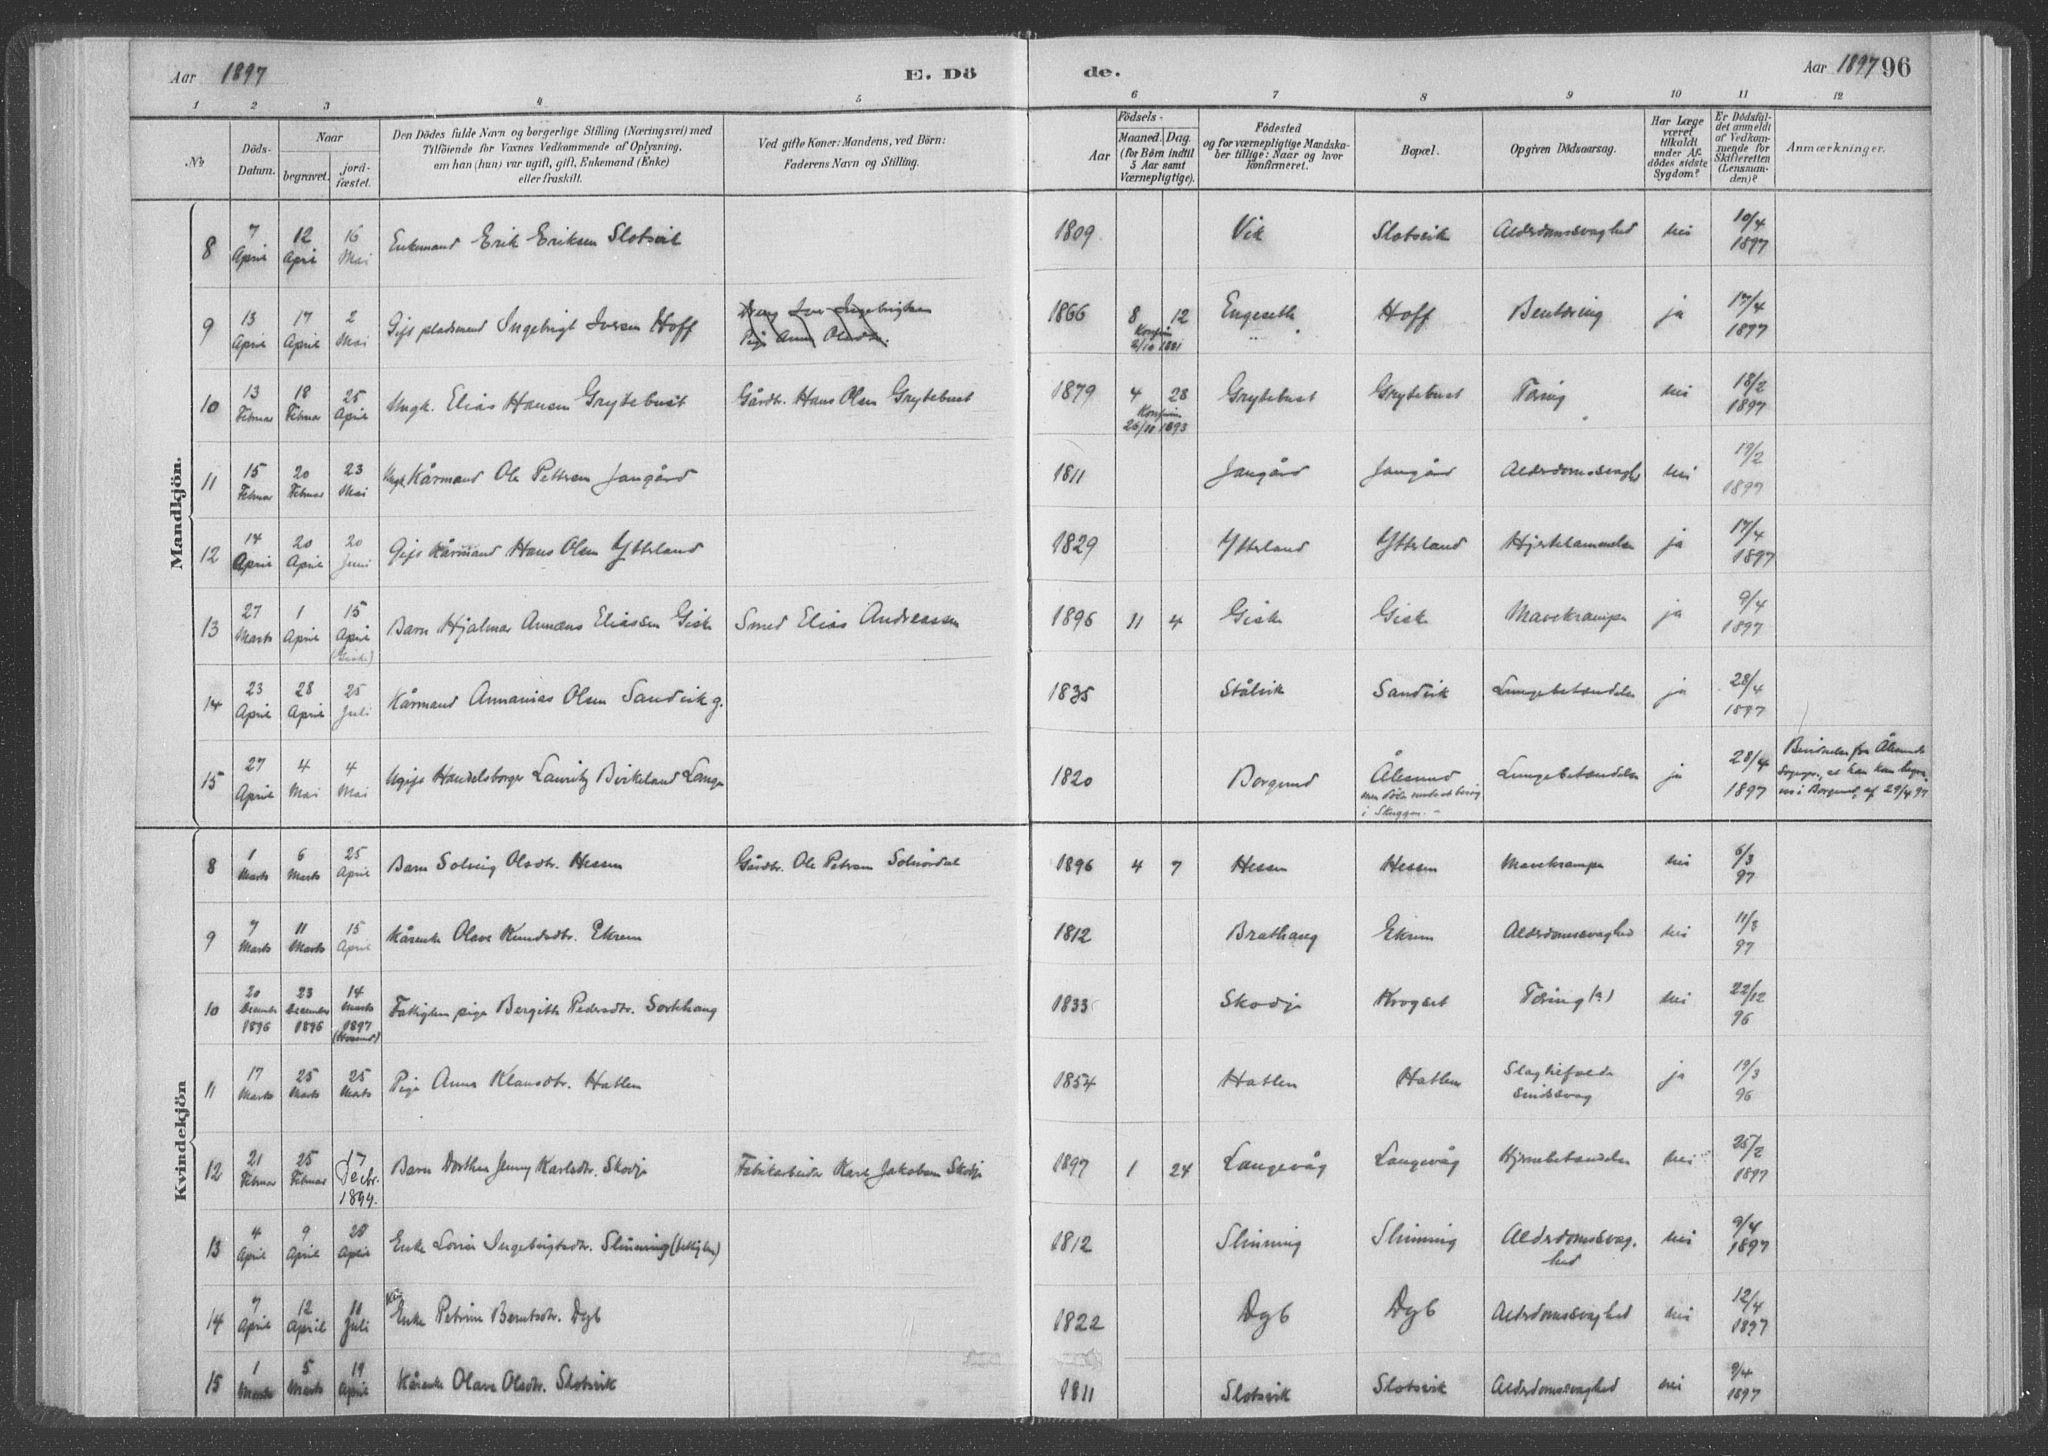 Aar 1897 E. Dö de. Aar 1897 96
1 2 3 4 5 6 7 8 9 10 11 12
No
Döds-Datum.
Naar
begravet.
jord-fæstet.
Den Dödes fulde Navn og borgerlige Stilling (Næringsvei) med
Tilföiende for Voxnes Vedkommende af Oplysning,
om han (hun) var ugift, gift, Enkemand (Enke)
eller fraskilt.
Ved gifte Koner: Mandens, ved Börn:
Faderens Navn og Stilling.
Födsels-
Aar
Maaned. Dag.
(for Börn indtil
5 Aar samt
Værnepligtige).
Födested
og for værnepligtige Mandska-
ber tillige: Naar og hvor
konfirmeret.
Bopæl.
Opgiven Dödsaarsag.
Har Læge
været
tilkaldt
under Af-
dödes sidste
Sygdom?
Er Dödsfal-
det anmeldt
af Vedkom-
mende for
Skifteretten
(Lensman-
den)?
Anmærkninger.
Mandkjön.
8 7 April 12 April 16 Mai Enkemand Erik Eriksen Slotsvik 1809 Vik Slotsvik Alderdomssvaghed nei 10/4 1897
9 13 April 17 April 2 Mai Gift pladsmand Ingebrigt Iversen Hoff Dreng Iver Ingebrigtsen
Pige Anne Olsdtr. 1866 8 12 Konfirm 2/10 1881 Engeseth Hoff Bentæring ja 17/4 1897
10 13 Februar 18 Februar 25 April Ungk. Elias Hansen Grytebust Gårdbr. Hans Olsen Grytebust 1879 4 28 Konfirm 26/11 1893 Grytebust Grytebust Tæring nei 18/2 1897
11 15 Februar 20 Februar 23 Mai Ungk. Kårmand Ole Pettersen Jangård 1811 Jangård Jangård Alderdomssvaghed nei 19/2 1897
12 14 April 20 April 20 Juni Gift Kårmand Hans Olsen Ytterland 1829 Ytterland Ytterland Hjertelammelse ja 17/4 1897
13 27 Marts 1 April 15 April (Giske) Barn Hjalmar Annæus Eliassen Giske Smed Elias Andreassen 1896 11 4 Giske Giske Mavekrampe ja 9/4 1897
14 23 April 28 April 25 Juli Kårmand Annanias Olsen Sandvik g. 1835 Stålvik Sandvik Lungebetændelse ja 28/4 1897
15 27 April 4 Mai 4 Mai Ugift Handelsborger Lauritz Birkeland Lange 1820 Borgund Ålesund
i Skuggen. Lungebetændelse ja 28/4 1897
af 29/4 97
Kvindekjön
8 1 Marts 6 Marts 25 April Barn Solveig Olsdtr. Hessen Gårdbr. Ole Petersen Solnørdal 1896 4 7 Hessen Hessen Mavekrampe nei 6/3 97
9 7 Marts 11 Marts 15 April Kårenke Olave Knudsdtr. Ekrem 1812 Brathaug Ekrem Alderdomssvaghed nei 11/3 97
10 20 December 1896 23 December 1896 14 Marts 1897 Fattiglem pige Bergitte Pedersdtr. Sortehaug 1833 Skodje Krogset Tæring (?) nei 22/12 96
11 17 Marts 25 Marts 25 Marts Pige Anna Klausdtr. Hatlen 1854 Hatlen Hatlen Slagtilfælde
sindssvag ja 19/3 96
12 21 Februar 25 Februar 17 Decbr. 1899. Barn Dorthea Jenny Karlsdtr. Skodje Fabrikarbeider Karl Jakobsen Skodje 1897 1 24 Langevåg Langevåg Hjernebetændelse nei 25/2 1897
13 4 April 9 April 28 April Enke Lovise Ingebrigtsdtr. Slinning (fattiglem) 1812 Slinning Slinning Alderdomssvag-
hed nei 9/4 1897
14 7 April 12 April 11 Juli Enke Petrine Berntsdtr. Dyb 1822 Dyb Dyb Alderdomssvaghed nei 12/4 1897
15 1 Marts 5 Marts 19 April Kårenke Olave Olsdtr. Slotsvik 1811 Slotsvik Slotsvik Alderdomssvaghed nei 9/4 1897